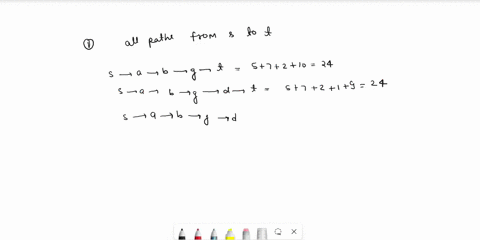 ① all paths from s to t
s → a → b → g → t = 5+7+2+10 = 24
s → a → b → g → d → t = 5+7+2+1+9 = 24
s → a → b → g → d